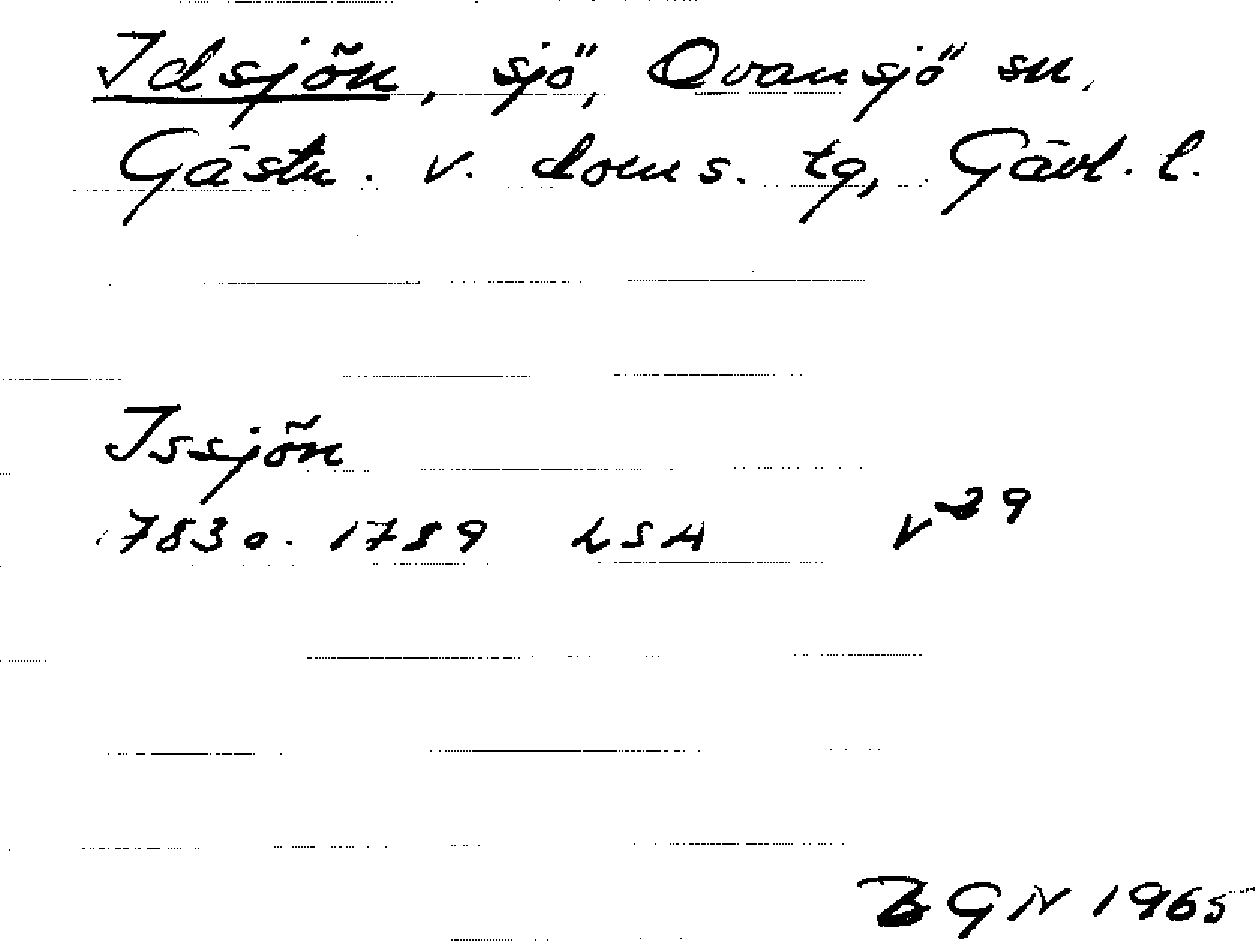 Idsjön, sjö, Ovansjö sn,
Gästr. v. doms. tg, Gävl. l.
Issjön
1783 o. 1789 LSA V 29
BGN 1965